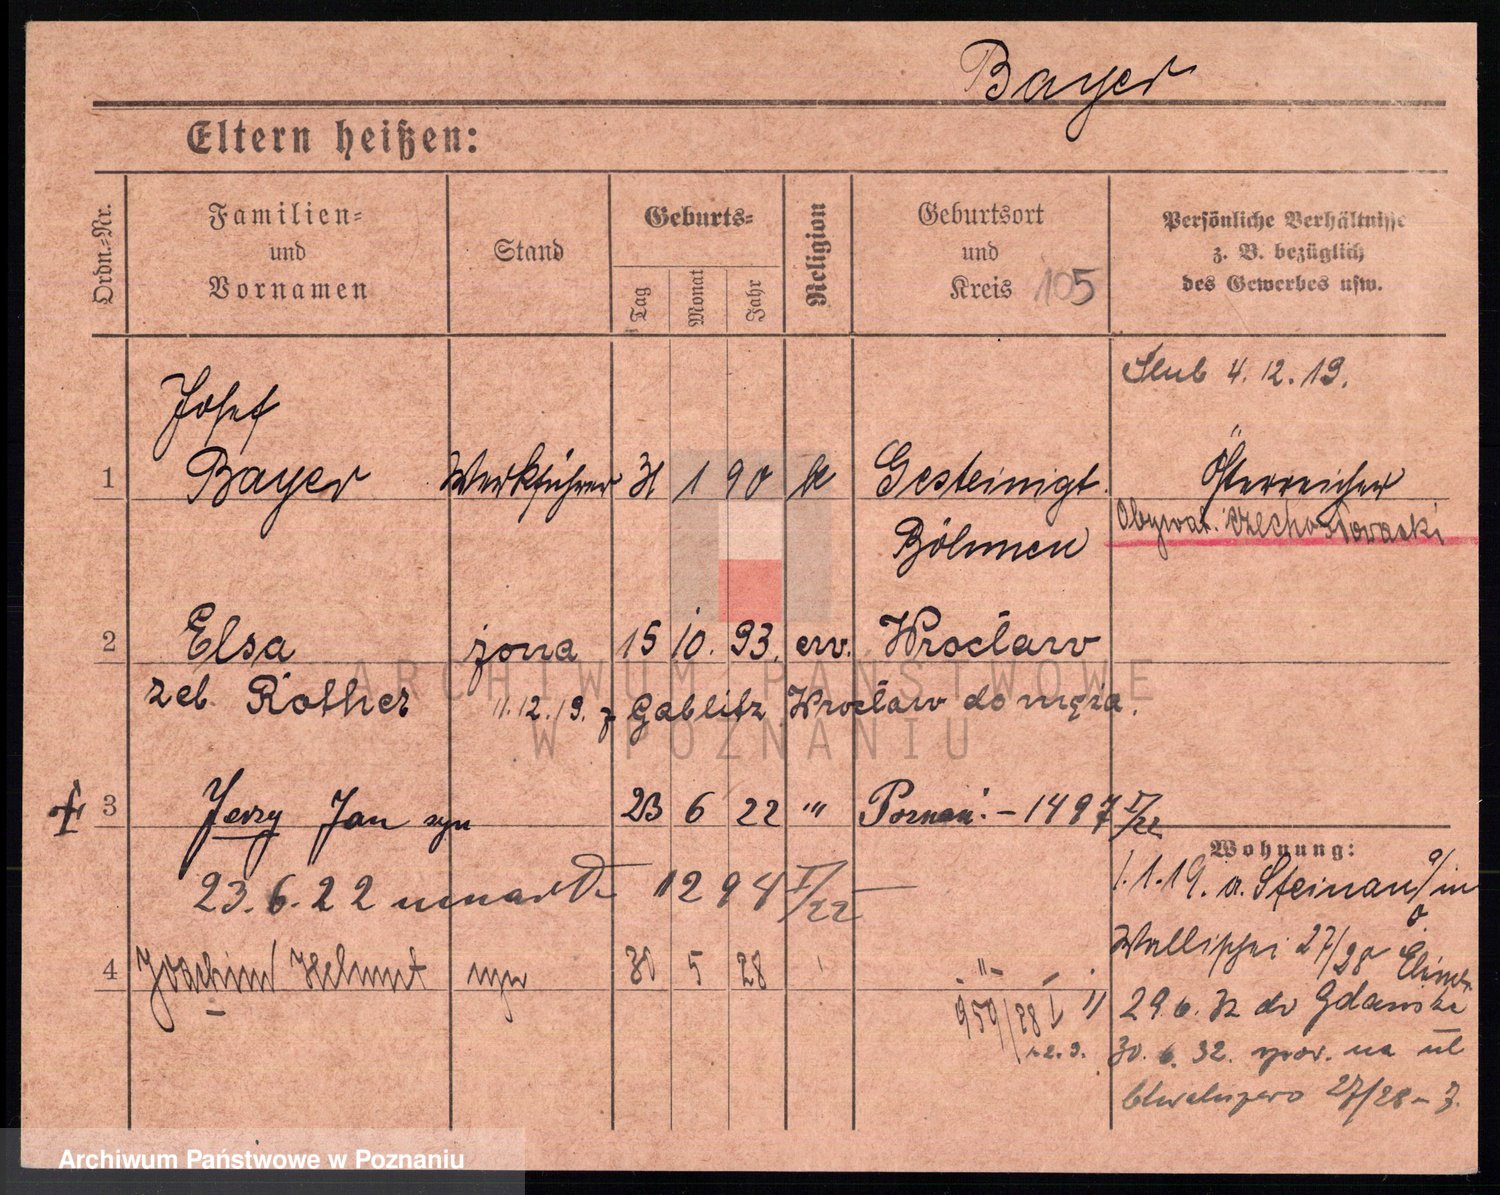 Bayer
Eltern heißen:
Ordn.-Nr.
Familien-
und
Vornamen
Stand
Geburts-
Tag
Monat
Jahr
Religion
Geburtsort
und
Kreis 105
Persönliche Verhältnisse
z. B. bezüglich
des Gewerbes usw.
Ślub 4. 12. 19.
Josef
1 Bayer Werkführer 31 1 90 k Gesteinigt Österreicher
Böhmen Obywat. czechosłowacki
2 Elsa żona 15 10. 93. ew. Wrocław
zeb. Rother 11.12.19. z Gablitz Wrocław do męża.
3 Jerzy Jan syn 23 6 22 "' Poznań - 1497 I/22
23.6.22 umarł 1294 I/22
Wohnung:
1.1.19. a. Steinau
Wallischei 27/28
4 Joachim Helmut syn 30 5 28 -"-
959/28
29.6.32 do Gdańska
30. 6. 32. spow. na ul
27/28 - 3.
ARCHIWUM PAŃSTWOWE
W POZNANIU
Archiwum Państwowe w Poznaniu